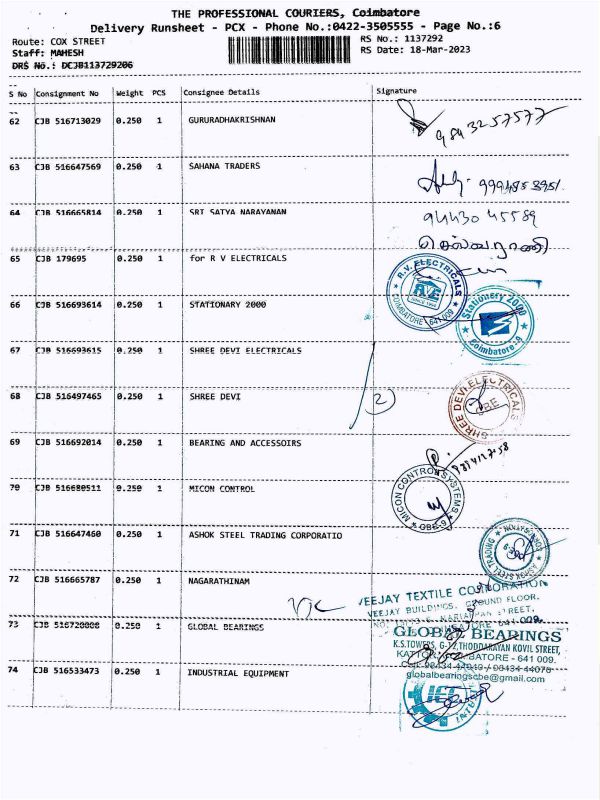 THE PROFESSIONAL COURIERS, Coimbatore
Delivery Runsheet - PCX - Phone No.:0422-3505555 - Page No.:6
Route: COX STREET RS No.: 1137292
Staff: MAHESH RS Date: 18-Mar-2023
DRS No.: DCJB113729206
S No Consignment No Weight PCS Consignee Details Signature
62 CJB 516713029 0.250 1 GURURADHAKRISHNAN
9843257577
63 CJB 516647569 0.250 1 SAHANA TRADERS
64 CJB 516665814 0.250 1 SRI SATYA NARAYANAN
94430 45589
செல்வராணி
65 CJB 179695 0.250 1 for R V ELECTRICALS
R.V. ELECTRICALS
RVE
COIMBATORE 641 009
66 CJB 516693614 0.250 1 STATIONARY 2000
Stationery 2000
Coimbatore-9
67 CJB 516693615 0.250 1 SHREE DEVI ELECTRICALS
68 CJB 516497465 0.250 1 SHREE DEVI
2
SHREE DEVI ELECTRICALS
CBE
69 CJB 516692014 0.250 1 BEARING AND ACCESSOIRS
70 CJB 516680511 0.250 1 MICON CONTROL
MICON CONTROL SYSTEMS
CBE-9
71 CJB 516647460 0.250 1 ASHOK STEEL TRADING CORPORATIO
ASHOK STEEL TRADING CORPORATION
72 CJB 516665787 0.250 1 NAGARATHINAM
VEEJAY TEXTILE CORPORATION
VEEJAY BUILDINGS, GROUND FLOOR,
73 CJB 516720008 0.250 1 GLOBAL BEARINGS
GLOBAL BEARINGS
K.S.TOWERS, G-12,THODDARAYAN KOVIL STREET,
641 009.
globalbearingscbe@gmail.com
74 CJB 516533473 0.250 1 INDUSTRIAL EQUIPMENT